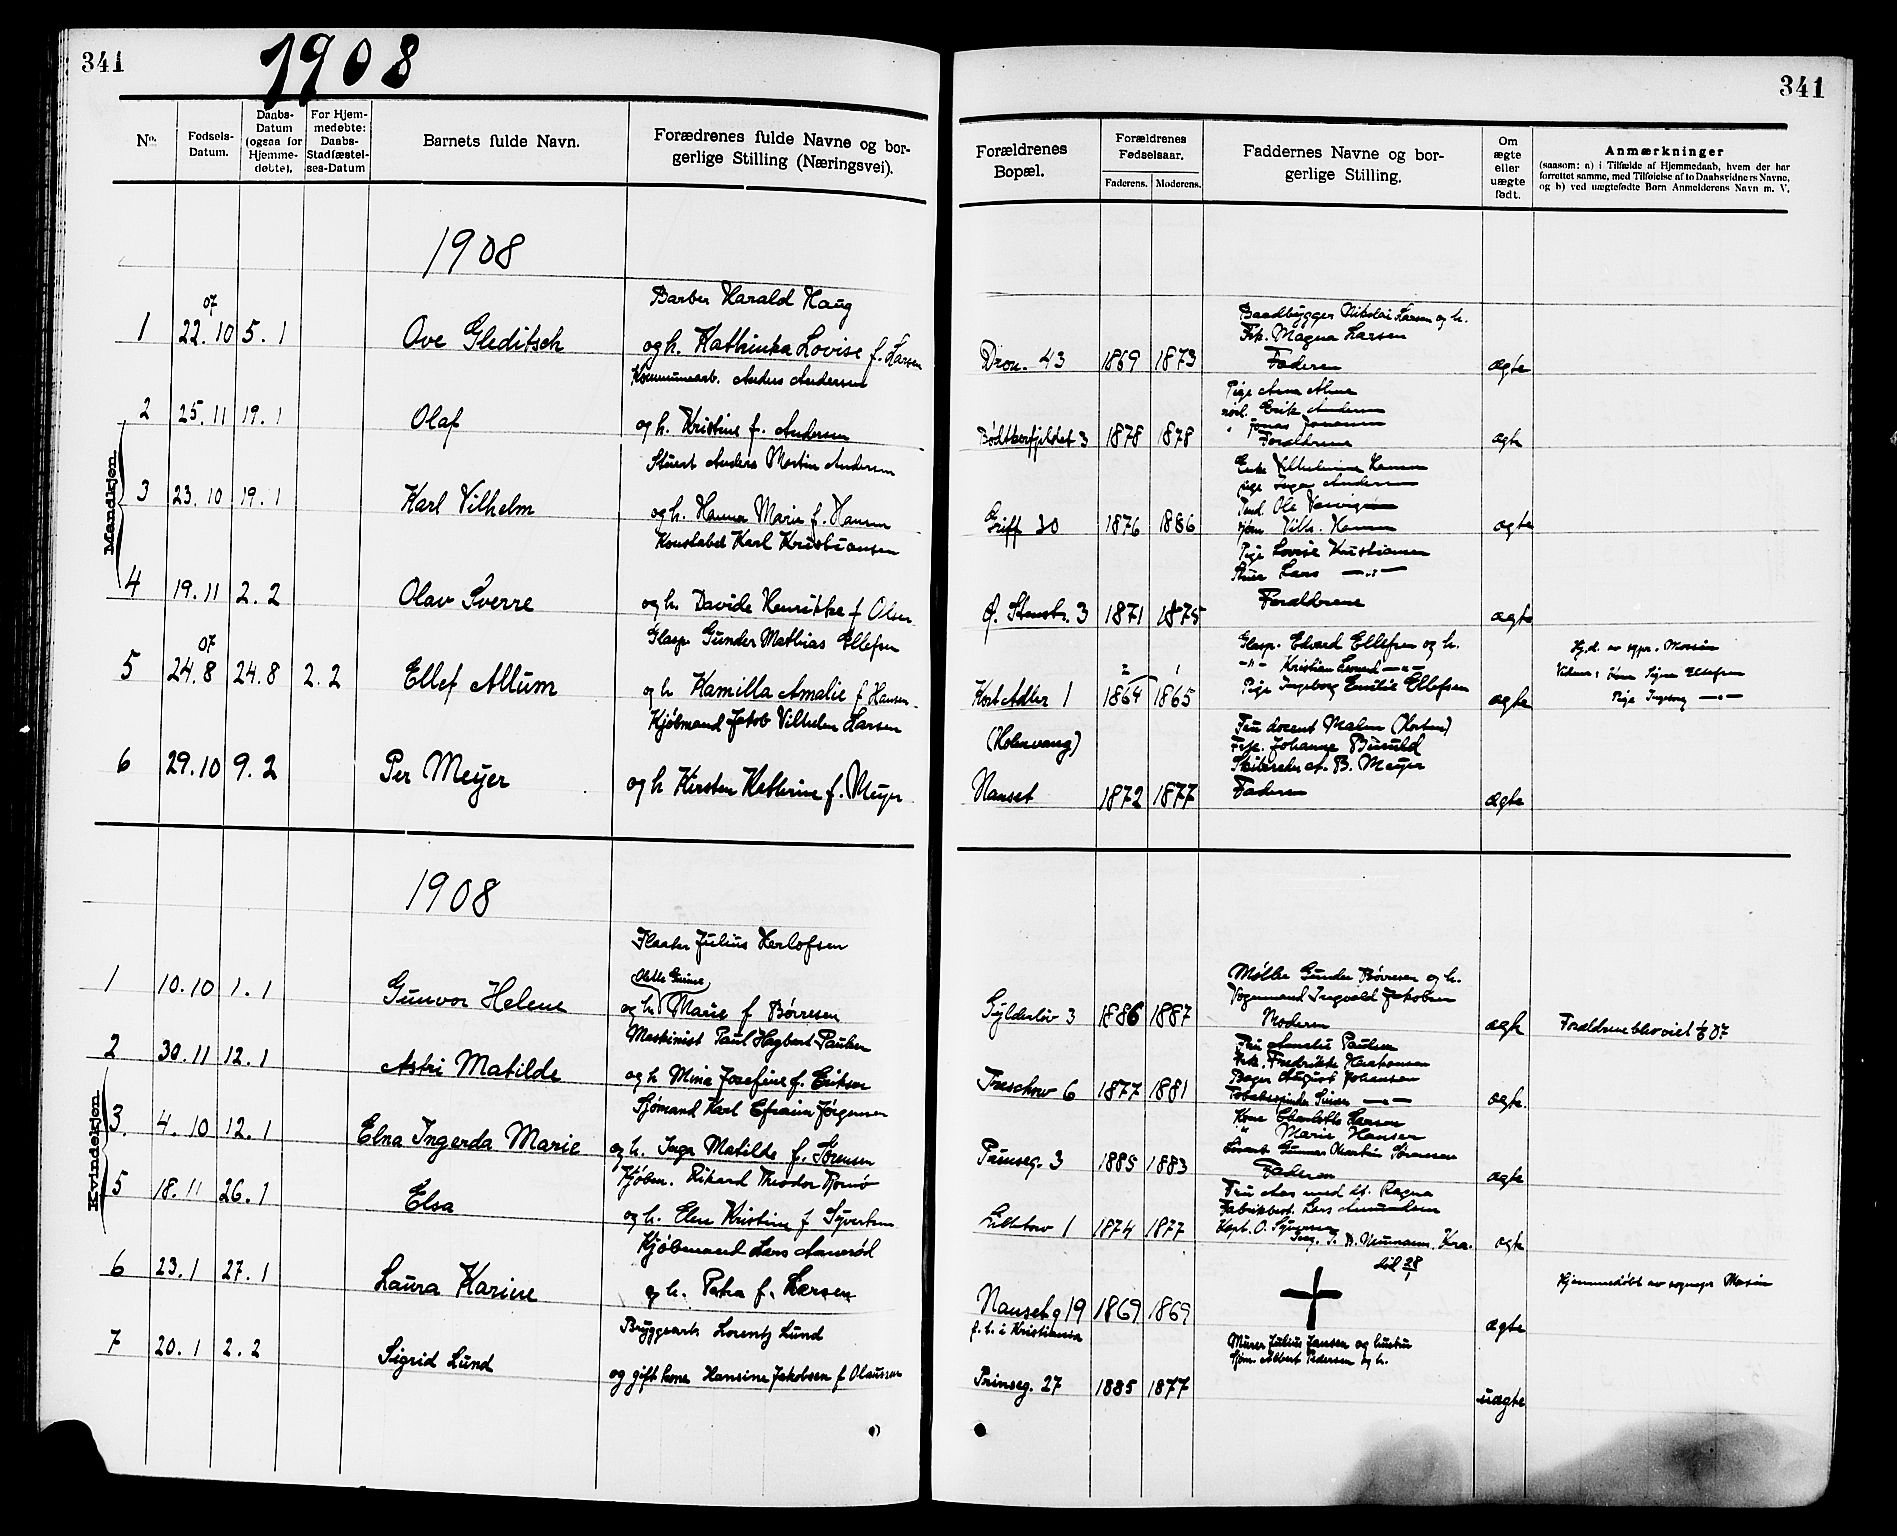 341
1908
No.
Fødsels-
Datum.
Daabs-
Datum
(ogsaa for
Hjemme-
døbte).
For Hjem-
medøbte:
Daabs-
Stadfæstel-
ses-Datum
Barnets fulde Navn.
Forædrenes fulde Navne og bor-
gerlige Stilling (Næringsvei).
1908
Mandkjøn
07
Barber Harald Haug
1 22.10 5.1 Ove Gleditsch og h. Kathinka Lovise f. Larsen
Kommunearb. Anders Andersen
2 25.11 19.1 Olaf og h. Kristine f. Andersen
Stuert Anders Martin Andersen
3 23.10 19.1 Karl Vilhelm og h. Hanna Marie f. Hansen
Konstabel Karl Kristiansen
4 19.11 2.2 Olav Sverre og h. Davida Henrikke f. Olsen
07
Glasp. Gunder Mathias Ellefsen
5 24.8 24.8 2.2 Ellef Allum og h Kamilla Amalie f. Hansen
Kjøbmand Jakob Vilhelm Larsen
6 29.10 9.2 Per Meyer og h Kirsten Kathrine f. Meyer
1908
Kvindekjøn
Julius Herlofsen
1 10.10 1.1 Gunvor Helene og h. Marie f Børresen
Maskinist Paul Hagbert Paulsen
2 30.11 12.1 Astri Matilde og h Mina Josefine f. Eriksen
Sjømand Karl Efraim Jørgensen
3. 4.10 12.1 Elna Ingerda Marie og h. Inga Matilde f. Sørensen
Kjøbm. Rikard Theodor
5 18.11 26.1 Elsa og h. Elen Kristine f Syvertsen
Kjøbmand Lars
6 23.1 27.1 Laura Karine og h. Petra f. Larsen
Bryggearb Lorentz Lund
7 20.1 2.2 Sigrid Lund og gift kone Hansine Jakobsen f Olaussen
341
Forældrenes
Bopæl.
Forældrenes
Fødselsaar.
Faderens. Moderens.
Faddernes Navne og bor-
gerlige Stilling.
Om
ægte
eller
uægte
født.
Anmærkninger
(saasom: a) i Tilfælde af Hjemmedaab, hvem der har
forrettet samme, med Tilføielse af to Daabsvidners Navne,
og b) ved uægtefødte Børn Anmelderens Navn m. V.
Baadbygger Nikolai Larsen og h.
Frk. Magna Larsen
Dron. 43 1869 1873 Faderen ægte
Pige Anna
Erik Andersen
Jonas
Bødtkerfjeldet 3 1878 1878 Forældrene ægte
Enke Vilhelmine Hansen
pige Inga Andersen
Ole
Griff 30 1876 1886 Vilh. Hansen ægte
Pige Lovise Kristiansen
Lars —"—
Ø. Stenstr. 3 1871 1875 Forældrene ægte
Glasp. Edvard Ellefsen og h.
—"— Kristian —"—
Kort Adler 1 1864 1865 Pige Ingeborg Emilie Ellefsen ægte
Hj.d. av sgpr.
Vidner: Signe Ellefsen
Pige Ingeborg —"—
(Holmvang)
Fru docent Malm (Horten)
Frk. Johanne
B. Meyer
Nanset 1872 1877 Faderen ægte
Møller Gunder Børresen og h.
Vognmand Ingvald Jakobsen
Gyldenløv 3 1886 1887 Moderen ægte Forældrene blev viet
Fru Amalie Paulsen
Frk. Fredrikke
Bager August Johansen
Treschow 6 1877 1881 —"— ægte.
Kone Charlotte Larsen
" Marie Hansen
Gunnar Martin Sørensen
Prinseg. 3 1885 1883 Faderen ægte
Fru Aas med dt. Ragna
Fabrikbest. Lars
Kapt. O. Syvertsen
1 1874 1877 Ing. Neumann, Kra. ægte
død 28/1
Nansetg 19 1869 1869 ægte
Hjemmedøbt av sogneprest
f. t. i Kristiania
Murer Julius Jansen og hustru
Sjøm. Albert Pedersen og h.
Prinseg. 27 1885 1877 uægte